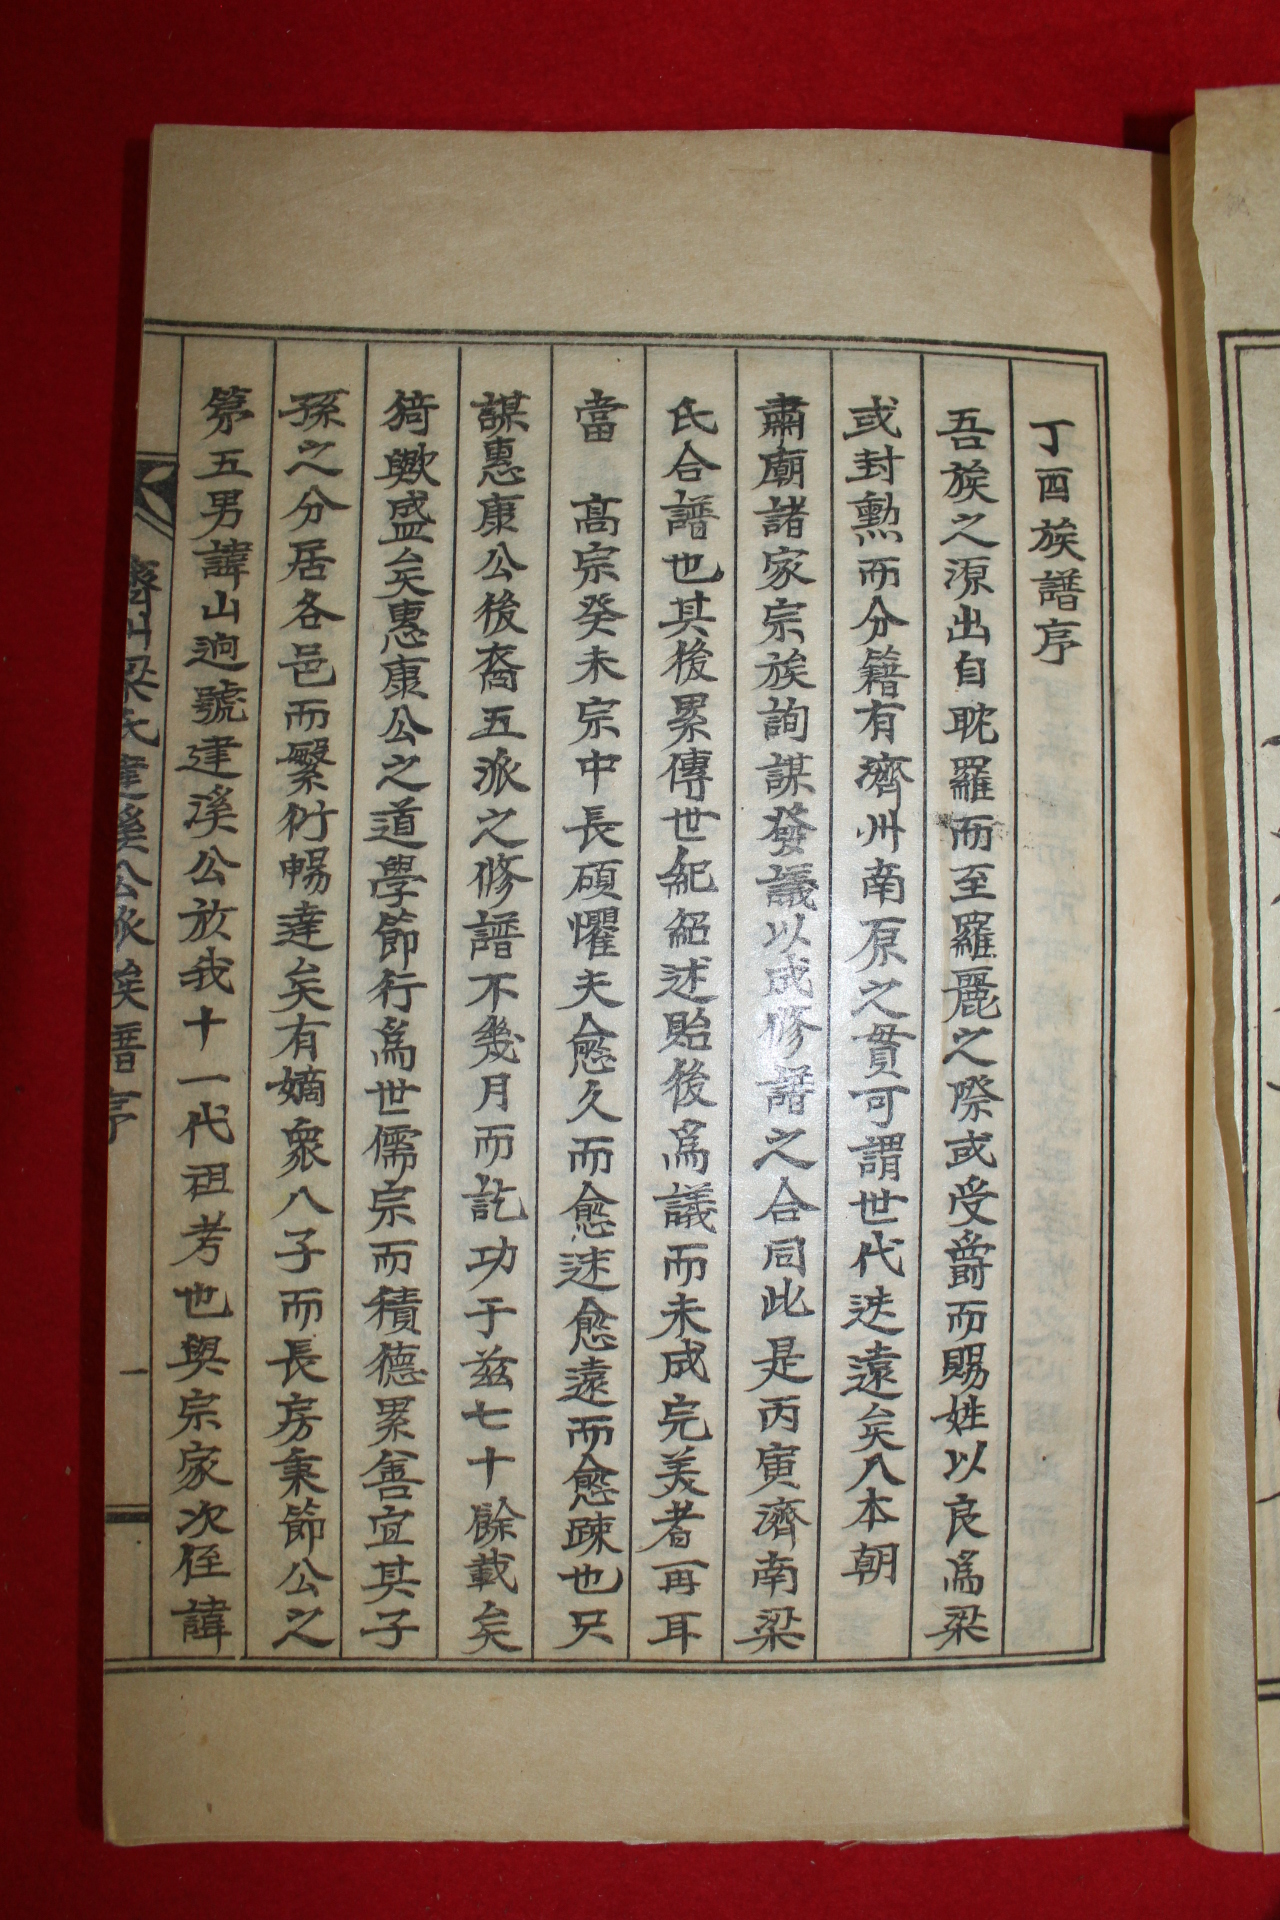 丁酉族譜序
吾族之源出自耽羅而至羅麗之際或受爵而賜姓以良爲梁
或封勳而分籍有濟州南原之貫可謂世代迭遠矣入本朝
肅廟諸家宗族詢謀發議以成修譜之合同此是丙寅濟南梁
氏合譜也其後累傳世紀紹述貽後爲議而未成完美者再耳
當 高宗癸未宗中長碩懼夫愈久而愈迷愈遠而愈疎也只
謀惠康公後裔五派之修譜不幾月而訖功于玆七十餘載矣
猗歟盛矣惠康公之道學節行爲世儒宗而積德累善宜其子
孫之分居各邑而繁衍暢達矣有嫡衆八子而長房秉節公之
第五男諱山逈號建溪公放我十一代祖考也與宗家次侄諱
濟州梁氏建溪公派族譜序
一